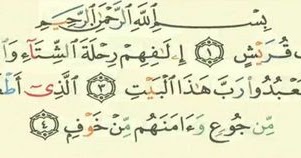 بِسْمِ ٱللَّهِ ٱلرَّحْمَٰنِ ٱلرَّحِيمِ
قُرَيْشٍ ١ إِۦلَٰفِهِمْ رِحْلَةَ ٱلشِّتَآءِ
عْبُدُوا۟ رَبَّ هَٰذَا ٱلْبَيْتِ ٣ ٱلَّذِىٓ أَطْ
مِّن جُوعٍ وَءَامَنَهُم مِّنْ خَوْفٍۭ ٤